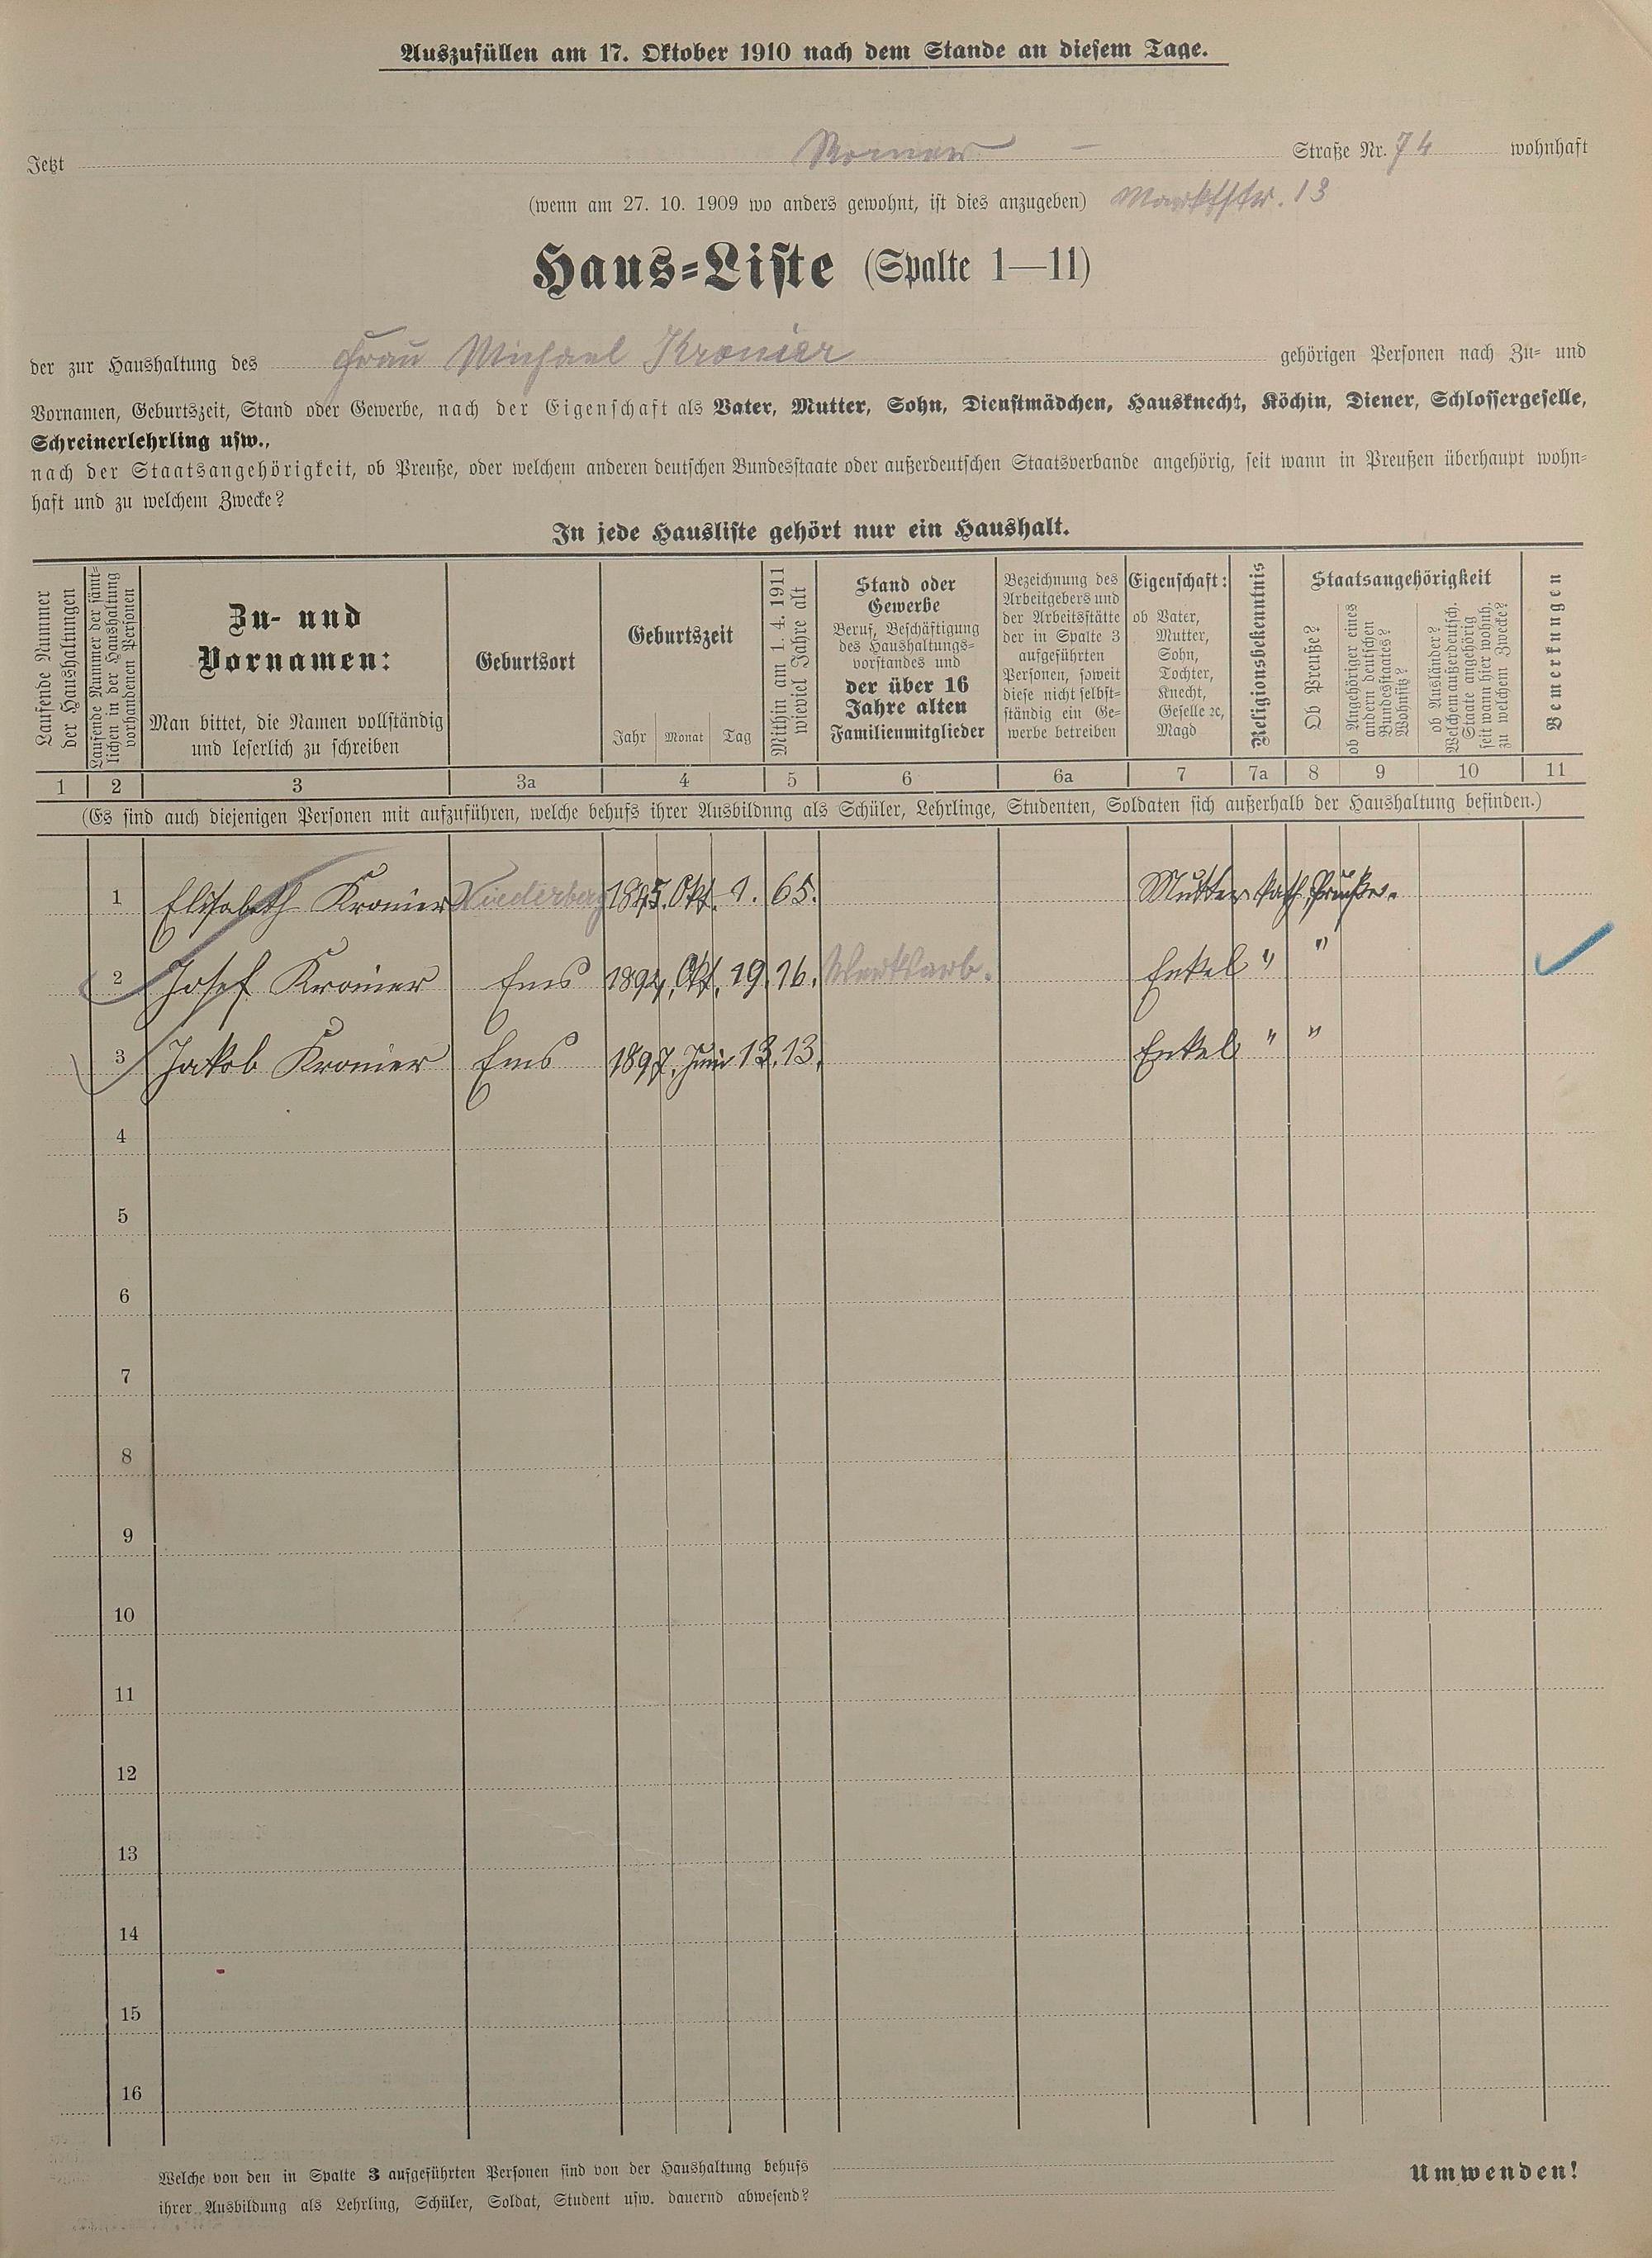 Auszufüllen am 17. Oktober 1910 nach dem Stande an diesem Tage.
Jetzt Römer - Straße Nr. 74 wohnhaft
(wenn am 27. 10. 1909 wo anders gewohnt, ist dies anzugeben) Marktstr. 13
Haus-Liste (Spalte 1—11)
der zur Haushaltung des Frau Michael Kromer gehörigen Personen nach Zu- und
Vornamen, Geburtszeit, Stand oder Gewerbe, nach der Eigenschaft als Vater, Mutter, Sohn, Dienstmädchen, Hausknecht, Köchin, Diener, Schlossergeselle,
Schreinerlehrling usw.,
nach der Staatsangehörigkeit, ob Preuße, oder welchem anderen deutschen Bundesstaate oder außerdeutschen Staatsverbande angehörig, seit wann in Preußen überhaupt wohn-
haft und zu welchem Zwecke?
In jede Hausliste gehört nur ein Haushalt.
Laufende Nummer
der Haushaltungen
Laufende Nummer der sämt-
lichen in der Haushaltung
vorhandenen Personen
Zu- und
Vornamen:
Man bittet, die Namen vollständig
und leserlich zu schreiben
Geburtsort
Geburtszeit
Jahr Monat Tag
Mithin am 1. 4. 1911
wieviel Jahre alt
Stand oder
Gewerbe
Beruf, Beschäftigung
des Haushaltungs-
vorstandes und
der über 16
Jahre alten
Familienmitglieder
Bezeichnung des
Arbeitgebers und
der Arbeitsstätte
der in Spalte 3
aufgeführten
Personen, soweit
diese nicht selbst-
ständig ein Ge-
werbe betreiben
Eigenschaft:
ob Vater,
Mutter,
Sohn,
Tochter,
Knecht,
Geselle ꝛc,
Magd
Religionsbekenntnis
Staatsangehörigkeit
Ob Preuße?
ob Angehöriger eines
andern deutschen
Bundesstaates?
Wohnsitz?
ob Ausländer?
Welchem außerdeutsch.
Staate angehörig
seit wann hier wohnh.
zu welchem Zwecke?
Bemerkungen
1 2 3 3a 4 5 6 6a 7 7a 8 9 10 11
(Es sind auch diejenigen Personen mit aufzuführen, welche behufs ihrer Ausbildung als Schüler, Lehrlinge, Studenten, Soldaten sich außerhalb der Haushaltung befinden.)
1 Elisabeth Kromer Niederberg 1845. Okt. 1. 65. Mutter kath. Preuße.
2 Josef Kromer Ems 1894. Okt. 19. 16. Werksarb. Enkel " "
3 Jakob Kromer Ems 1897. Juni 13. 13. Enkel " "
4
5
6
7
8
9
10
11
12
13
14
15
16
Welche von den in Spalte 3 aufgeführten Personen sind von der Haushaltung behufs
ihrer Ausbildung als Lehrling, Schüler, Soldat, Student usw. dauernd abwesend?
Umwenden!